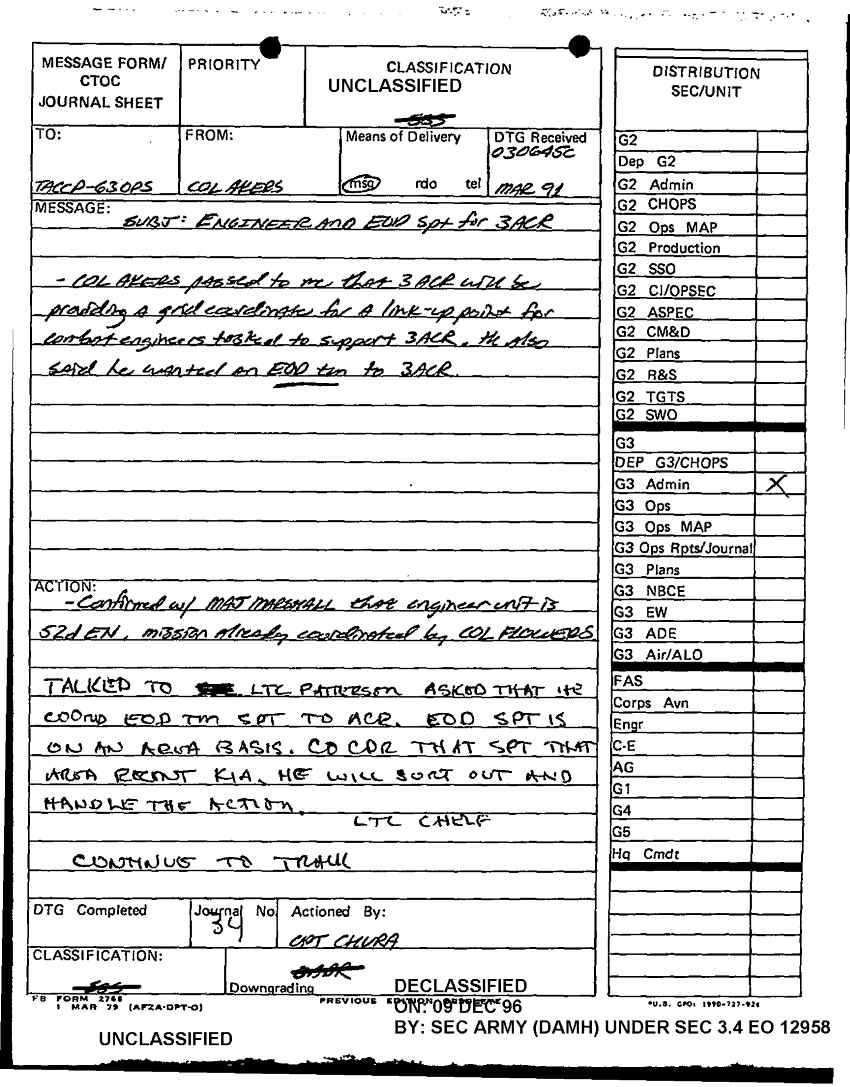 MESSAGE FORM/
CTOC
JOURNAL SHEET
PRIORITY
CLASSIFICATION
UNCLASSIFIED
TO:
TACCP-G3OPS
FROM:
COL AKERS
Means of Delivery
msg rdo tel
DTG Received
030645C
MAR 91
MESSAGE:
SUBJ: ENGINEER AND EOD Spt for 3ACR
- COL AKERS passed to me that 3 ACR will be
providing a grid coordinate for a link-up point for
combat engineers tasked to support 3ACR. He also
said he wanted an EOD tm to 3ACR.
ACTION:
- Confirmed w/ MAJ MARSHALL that engineer unit is
52d EN, mission already coordinated by COL FLOWERS
TALKED TO LTC PATTERSON ASKED THAT HE
COORD EOD TM SPT TO ACR. EOD SPT IS
ON AN AREA BASIS. CO CDR THAT SPT THAT
AREA RECENT KIA. HE WILL SORT OUT AND
HANDLE THE ACTION.
LTC CHELF
CONTINUE TO TRACK
DTG Completed
Journal No.
34
Actioned By:
CPT CHURA
CLASSIFICATION:
Downgrading
FB FORM 2768
1 MAR 79 (AFZA-DPT-O)
PREVIOUS EDITION OBSOLETE
UNCLASSIFIED
DECLASSIFIED
ON: 09 DEC 96
BY: SEC ARMY (DAMH) UNDER SEC 3.4 EO 12958
DISTRIBUTION
SEC/UNIT
G2
Dep G2
G2 Admin
G2 CHOPS
G2 Ops MAP
G2 Production
G2 SSO
G2 CI/OPSEC
G2 ASPEC
G2 CM&D
G2 Plans
G2 R&S
G2 TGTS
G2 SWO
G3
DEP G3/CHOPS
G3 Admin X
G3 Ops
G3 Ops MAP
G3 Ops Rpts/Journal
G3 Plans
G3 NBCE
G3 EW
G3 ADE
G3 Air/ALO
FAS
Corps Avn
Engr
C-E
AG
G1
G4
G5
Hq Cmdt
*U.S. GPO: 1990-727-924